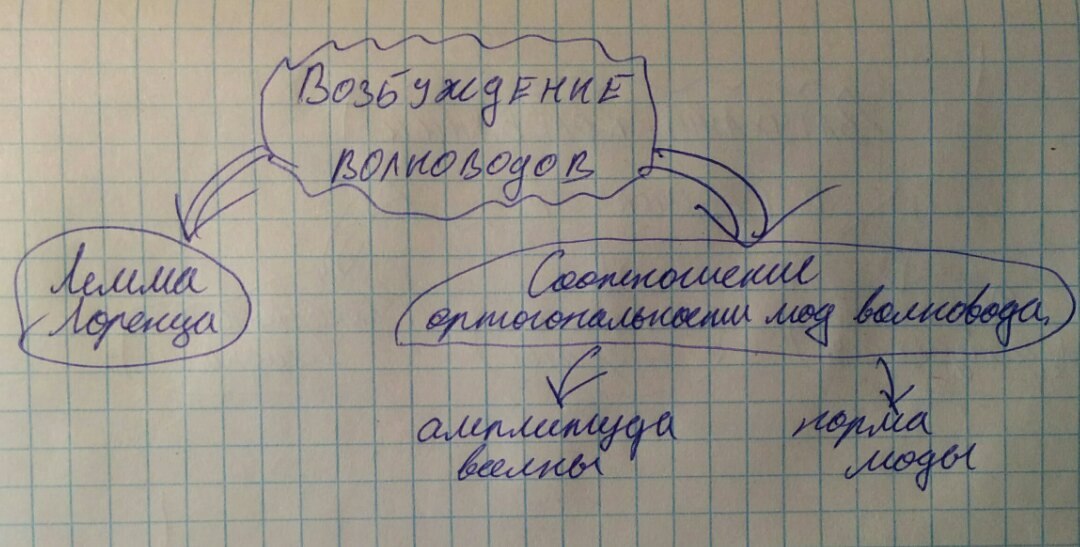 ВОЗБУЖДЕНИЕ
ВОЛНОВОДОВ
Лемма
Лоренца
Соотношение
ортогональности мод волновода
амплитуда
волны
норма
моды